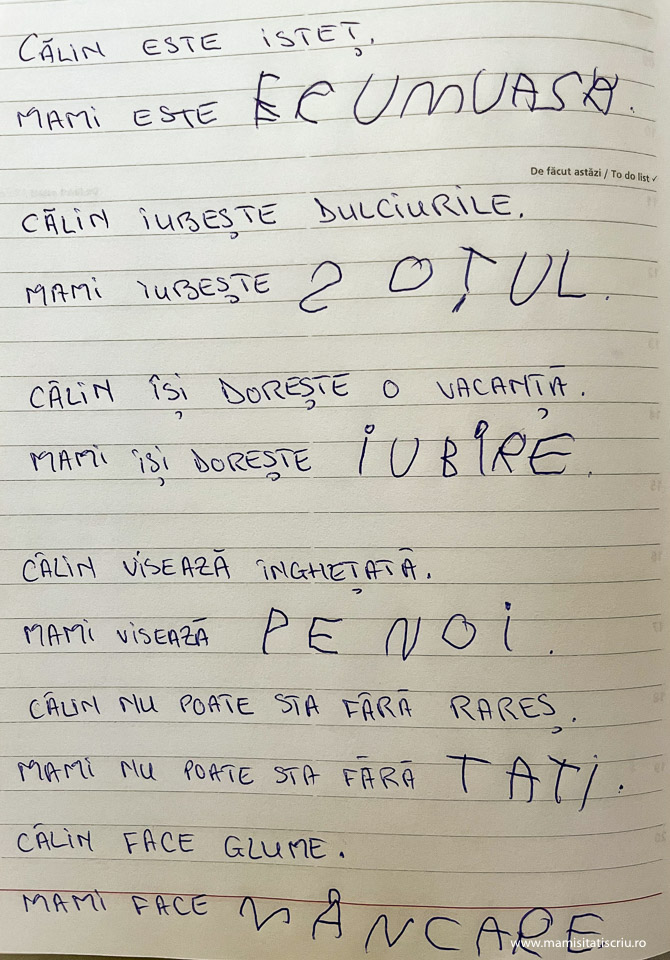 CĂLIN ESTE ISTEȚ.
MAMI ESTE ECUMUASA.
De făcut astăzi / To do list ✓
CĂLIN IUBEȘTE DULCIURILE.
MAMI IUBEȘTE SOȚUL.
CĂLIN ÎȘI DOREȘTE O VACANȚĂ.
MAMI ÎȘI DOREȘTE IUBIRE.
CĂLIN VISEAZĂ ÎNGHEȚATĂ.
MAMI VISEAZĂ PE NOI.
CĂLIN NU POATE STA FĂRĂ RAREȘ.
MAMI NU POATE STA FĂRĂ TATI.
CĂLIN FACE GLUME.
MAMI FACE MÂNCARE
www.mamisitatiscriu.ro